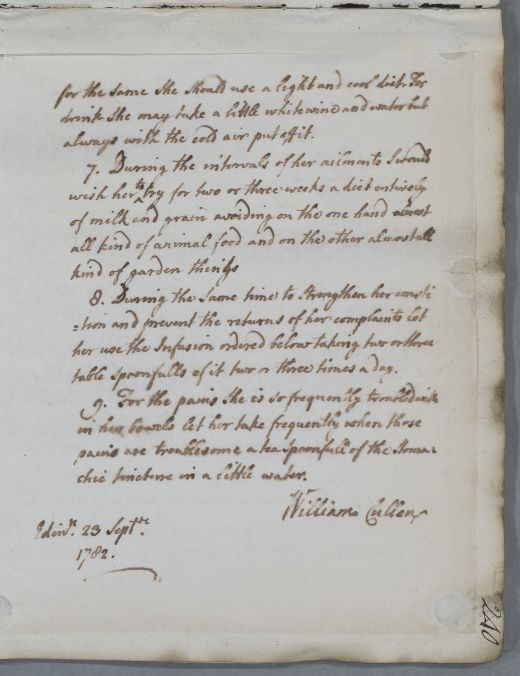 for the same she should use a light and cool diet. For
drink she may take a little white wine and water but
always with the cold air put off it.
7. During the intervals of her ailments I would
wish her to try for two or three weeks a diet entirely
of milk and grain avoiding on the one hand almost
all kind of animal food and on the other almost all
kind of garden things
8. During the same time to strengthen her consti
=tion and prevent the returns of her complaints let
her use the Infusion ordered below taking two or three
table spoonfulls of it two or three times a day.
9. For the pains she is so frequently troubled with
in her bowels let her take frequently when those
pains are troublesome a tea spoonfull of the stoma-
chic tincture in a little water.
William Cullen
Edinr. 23 Septr.
1782.
240